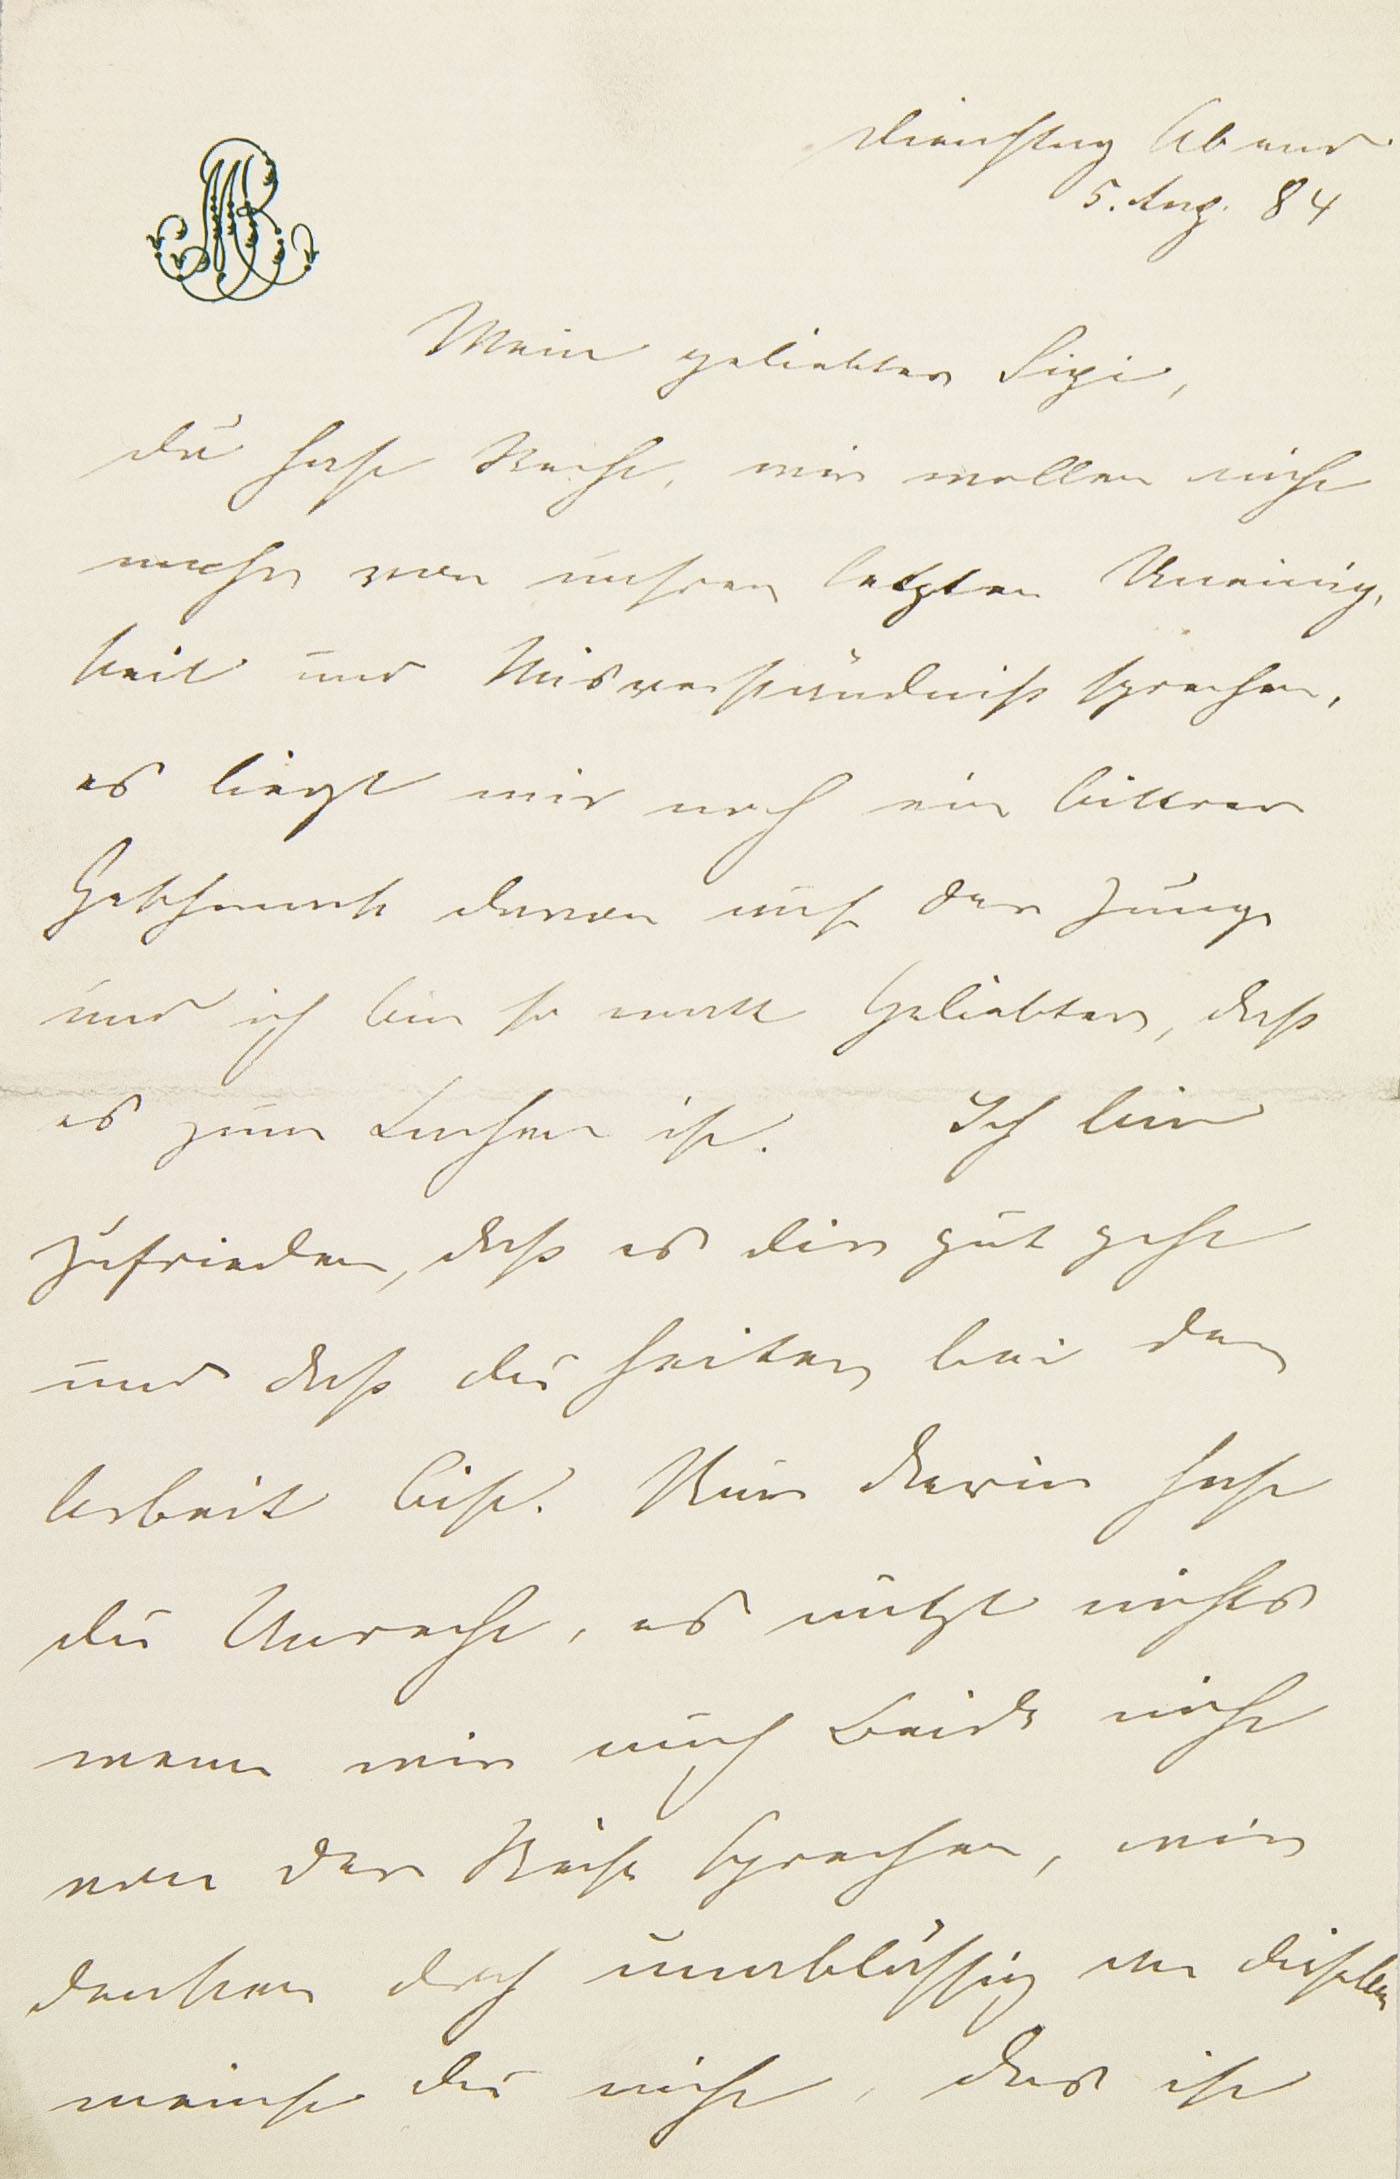 MB
Dienstag Abend
5. Aug. 84
Mein geliebter Sigi,
du hast Recht, wir wollen nicht
mehr von unsrer letzten Uneinig,
keit und Misverständniß sprechen,
es liegt mir noch ein bittrer
Geschmack davon auf der Zunge
und ich bin so matt Geliebter, daß
es zum Lachen ist. Ich bin
zufrieden, daß es dir gut geht
und daß du heiter bei der
Arbeit bist. Nur darin hast
du Unrecht, es nützt nichts
wenn wir auch Beide nicht
von der Reise sprechen, wir
denken doch unabläßig an dieselbe
meinst du nicht, das ist